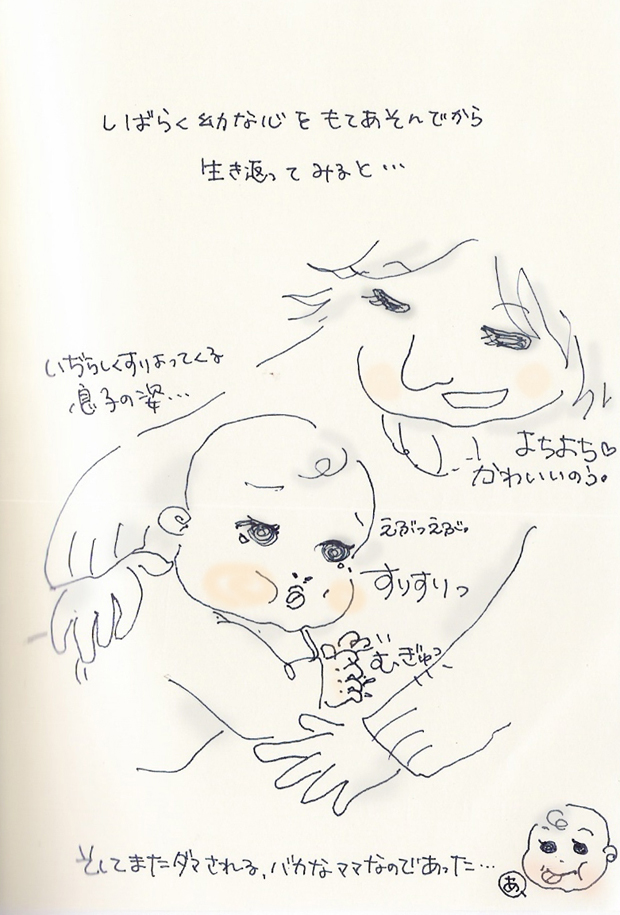 しばらく幼な心をもてあそんでから
生き返ってみると…
いぢらしくすりよってくる
息子の姿…
よちよち♡
かわいいのう。
えぶっえぶっ
すりすりっ
むぎゅっ
そしてまたダマされる、バカなママなのであった…
あ